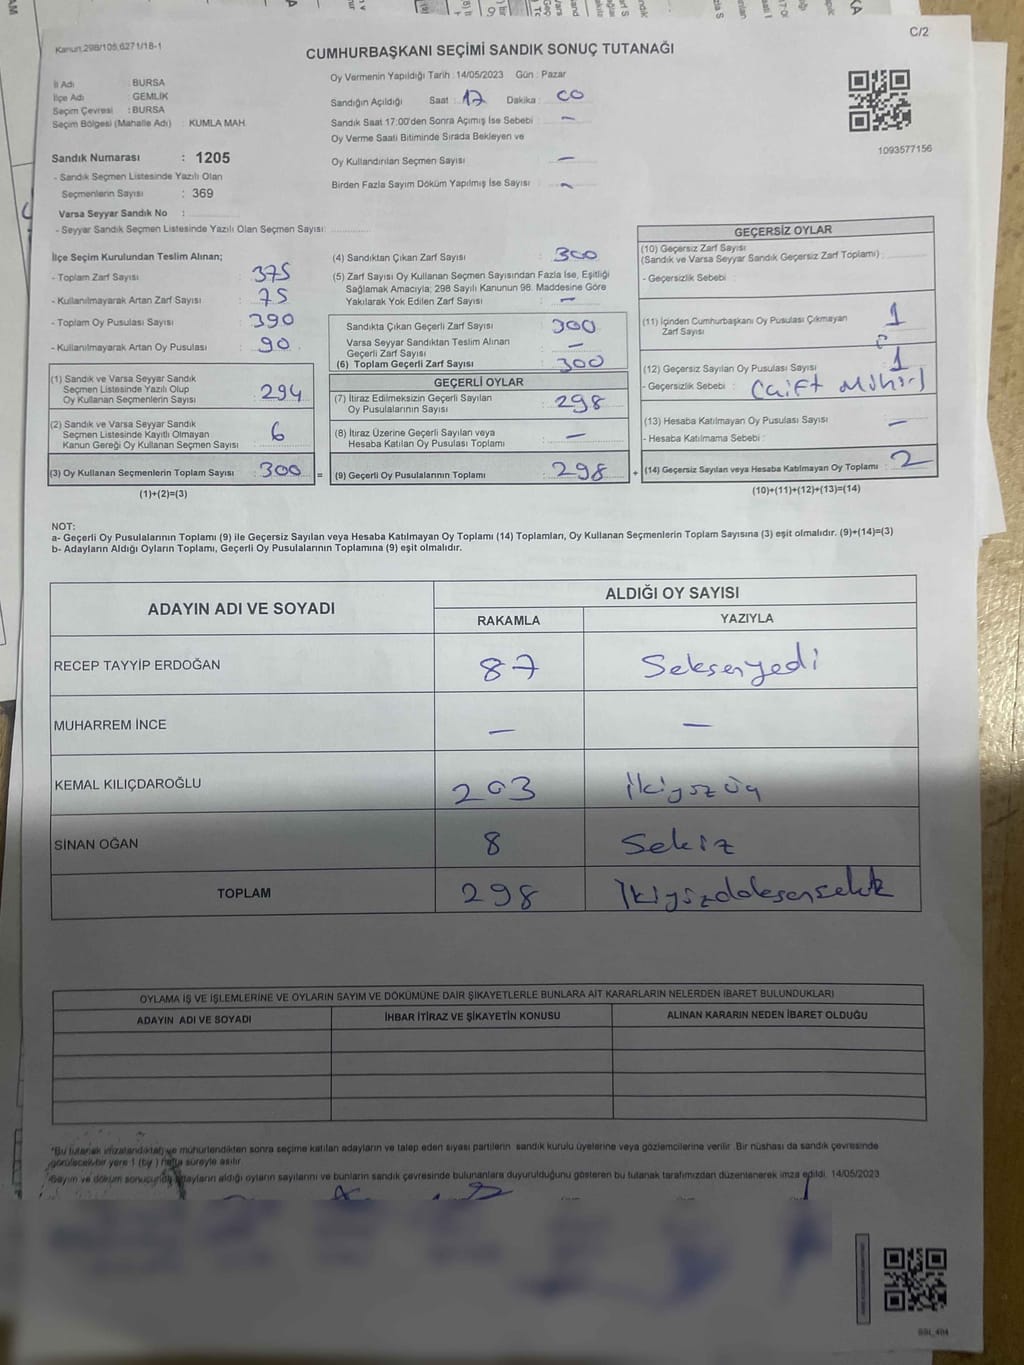 C/2
Kanun.298/105,6271/18-1
CUMHURBAŞKANI SEÇİMİ SANDIK SONUÇ TUTANAĞI
İl Adı : BURSA
İlçe Adı : GEMLİK
Seçim Çevresi : BURSA
Seçim Bölgesi (Mahalle Adı) : KUMLA MAH.
Sandık Numarası : 1205
- Sandık Seçmen Listesinde Yazılı Olan
Seçmenlerin Sayısı : 369
Varsa Seyyar Sandık No :
- Seyyar Sandık Seçmen Listesinde Yazılı Olan Seçmen Sayısı:
Oy Vermenin Yapıldığı Tarih : 14/05/2023 Gün : Pazar
Sandığın Açıldığı Saat : 17 Dakika : 00
Sandık Saat 17:00'den Sonra Açımış İse Sebebi : –
Oy Verme Saati Bitiminde Sırada Bekleyen ve
Oy Kullandırılan Seçmen Sayısı –
Birden Fazla Sayım Döküm Yapılmış İse Sayısı : –
1093577156
İlçe Seçim Kurulundan Teslim Alınan;
- Toplam Zarf Sayısı : 375
- Kullanılmayarak Artan Zarf Sayısı : 75
- Toplam Oy Pusulası Sayısı : 390
- Kullanılmayarak Artan Oy Pusulası : 90
(1) Sandık ve Varsa Seyyar Sandık
Seçmen Listesinde Yazılı Olup
Oy Kullanan Seçmenlerin Sayısı : 294
(2) Sandık ve Varsa Seyyar Sandık
Seçmen Listesinde Kayıtlı Olmayan
Kanun Gereği Oy Kullanan Seçmen Sayısı : 6
(3) Oy Kullanan Seçmenlerin Toplam Sayısı : 300 =
(1)+(2)=(3)
(4) Sandıktan Çıkan Zarf Sayısı : 300
(5) Zarf Sayısı Oy Kullanan Seçmen Sayısından Fazla İse, Eşitliği
Sağlamak Amacıyla; 298 Sayılı Kanunun 98. Maddesine Göre
Yakılarak Yok Edilen Zarf Sayısı : –
Sandıkta Çıkan Geçerli Zarf Sayısı : 300
Varsa Seyyar Sandıktan Teslim Alınan
Geçerli Zarf Sayısı : –
(6) Toplam Geçerli Zarf Sayısı : 300
GEÇERLİ OYLAR
(7) İtiraz Edilmeksizin Geçerli Sayılan
Oy Pusulalarının Sayısı : 298
(8) İtiraz Üzerine Geçerli Sayılan veya
Hesaba Katılan Oy Pusulası Toplamı : –
(9) Geçerli Oy Pusulalarının Toplamı : 298 +
GEÇERSİZ OYLAR
(10) Geçersiz Zarf Sayısı
(Sandık ve Varsa Seyyar Sandık Geçersiz Zarf Toplamı) :
- Geçersizlik Sebebi :
(11) İçinden Cumhurbaşkanı Oy Pusulası Çıkmayan
Zarf Sayısı : 1
(12) Geçersiz Sayılan Oy Pusulası Sayısı : 1
- Geçersizlik Sebebi : Çift Mühür
(13) Hesaba Katılmayan Oy Pusulası Sayısı : –
- Hesaba Katılmama Sebebi :
(14) Geçersiz Sayılan veya Hesaba Katılmayan Oy Toplamı : 2
(10)+(11)+(12)+(13)=(14)
NOT:
a- Geçerli Oy Pusulalarının Toplamı (9) ile Geçersiz Sayılan veya Hesaba Katılmayan Oy Toplamı (14) Toplamları, Oy Kullanan Seçmenlerin Toplam Sayısına (3) eşit olmalıdır. (9)+(14)=(3)
b- Adayların Aldığı Oyların Toplamı, Geçerli Oy Pusulalarının Toplamına (9) eşit olmalıdır.
ADAYIN ADI VE SOYADI ALDIĞI OY SAYISI
RAKAMLA YAZIYLA
RECEP TAYYİP ERDOĞAN 87 Seksenyedi
MUHARREM İNCE – –
KEMAL KILIÇDAROĞLU 203 İkiyüzüç
SİNAN OĞAN 8 Sekiz
TOPLAM 298
OYLAMA İŞ VE İŞLEMLERİNE VE OYLARIN SAYIM VE DÖKÜMÜNE DAİR ŞİKAYETLERLE BUNLARA AİT KARARLARIN NELERDEN İBARET BULUNDUKLARI
ADAYIN ADI VE SOYADI İHBAR İTİRAZ VE ŞİKAYETİN KONUSU ALINAN KARARIN NEDEN İBARET OLDUĞU
*Bu tutanak imzalandıktan ve mühürlendikten sonra seçime katılan adayların ve talep eden siyasi partilerin sandık kurulu üyelerine veya gözlemcilerine verilir. Bir nüshası da sandık çevresinde
görülecek bir yere 1 (bir) hafta süreyle asılır.
Sayım ve döküm sonucunda adayların aldığı oyların sayılarını ve bunların sandık çevresinde bulunanlara duyurulduğunu gösteren bu tutanak tarafımızdan düzenlenerek imza edildi. 14/05/2023